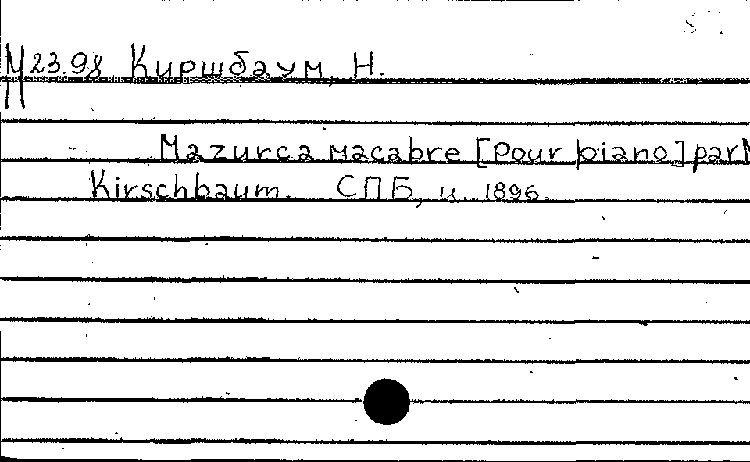 М 23.98 Киршбаум, Н.
П
Mazurca macabre [pour piano] par N
Kirschbaum. СПБ, ц. 1896.